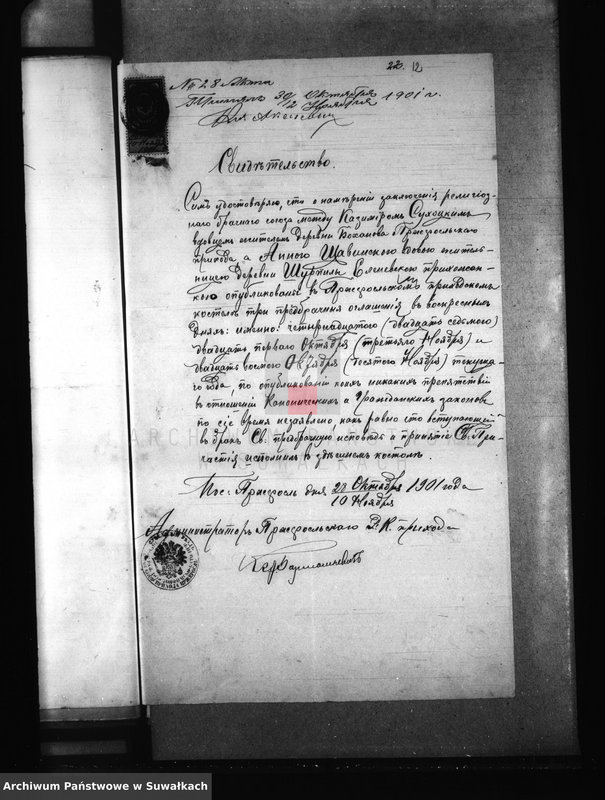 22. 12
№ 28 Акта
30 Октября
12 Ноября 1901 г.
Свидѣтельство.
Симъ удостовѣряю, что о намѣреніи заключенія религіоз-
наго брачнаго союза между Казиміромъ Сухоцкимъ
вдовцемъ жителемъ деревни Боханова Пржеросльскаго
прихода а Анною Щавинскою вдовою житель-
ницею деревни Шурпилы Еленевскою прихожан-
кою опубликованы въ Пржеросльскомъ приходскомъ
костелѣ три предбрачныя оглашенія въ воскресныхъ
дняхъ: именно: четырнадцатого (двадцать седьмого)
двадцать перваго Октября (третьяго Ноября) и
двадцать восьмого Октября (десятого Ноября) текуща-
го года, по опубликованіи коихъ никакихъ препятствій
въ отношеніи Каноническихъ и Гражданскихъ законовъ
по сіе время незаявлено, какъ равно что вступающіе
въ бракъ Св. предбрачную исповѣдь и принятіе Св. При-
частія исполнили въ здѣшнемъ костелѣ.
Пос. Пржеросль дня 28 Октября 1901 года
10 Ноября
Администраторъ Пржеросльскаго Р. К. прихода
Archiwum Państwowe w Suwałkach